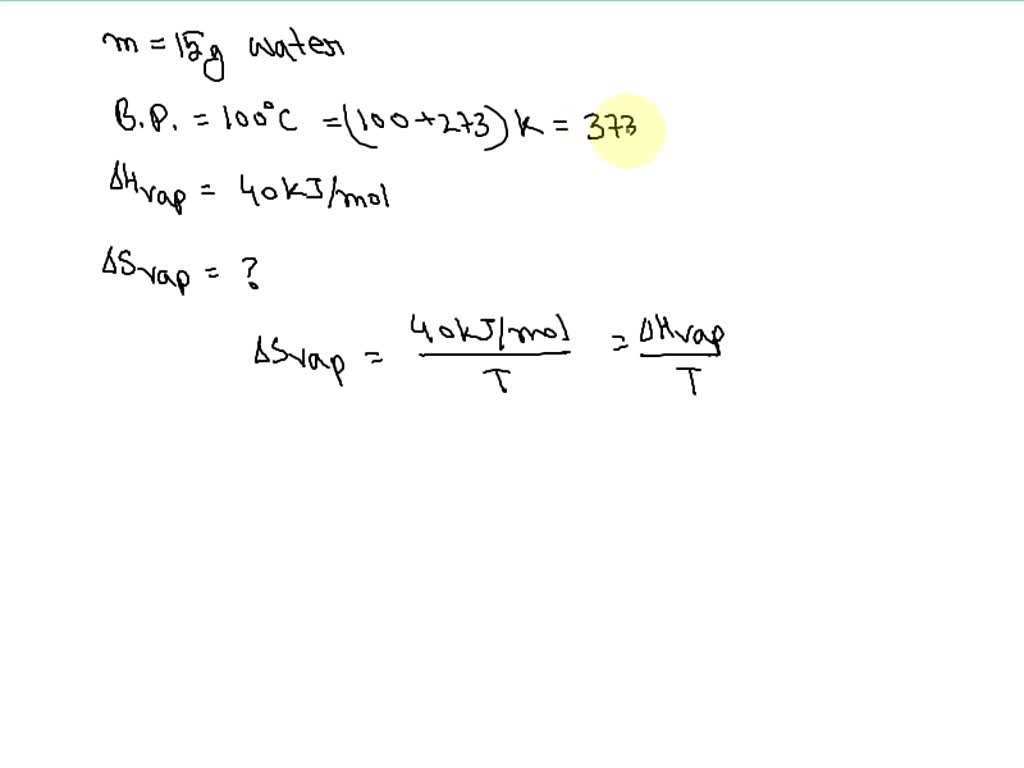 m = 15g water
B.P. = 100°C = (100+273) K = 373
ΔHvap = 40kJ/mol
ΔSvap = ?
ΔSvap = 40kJ/mol / T = ΔHvap / T